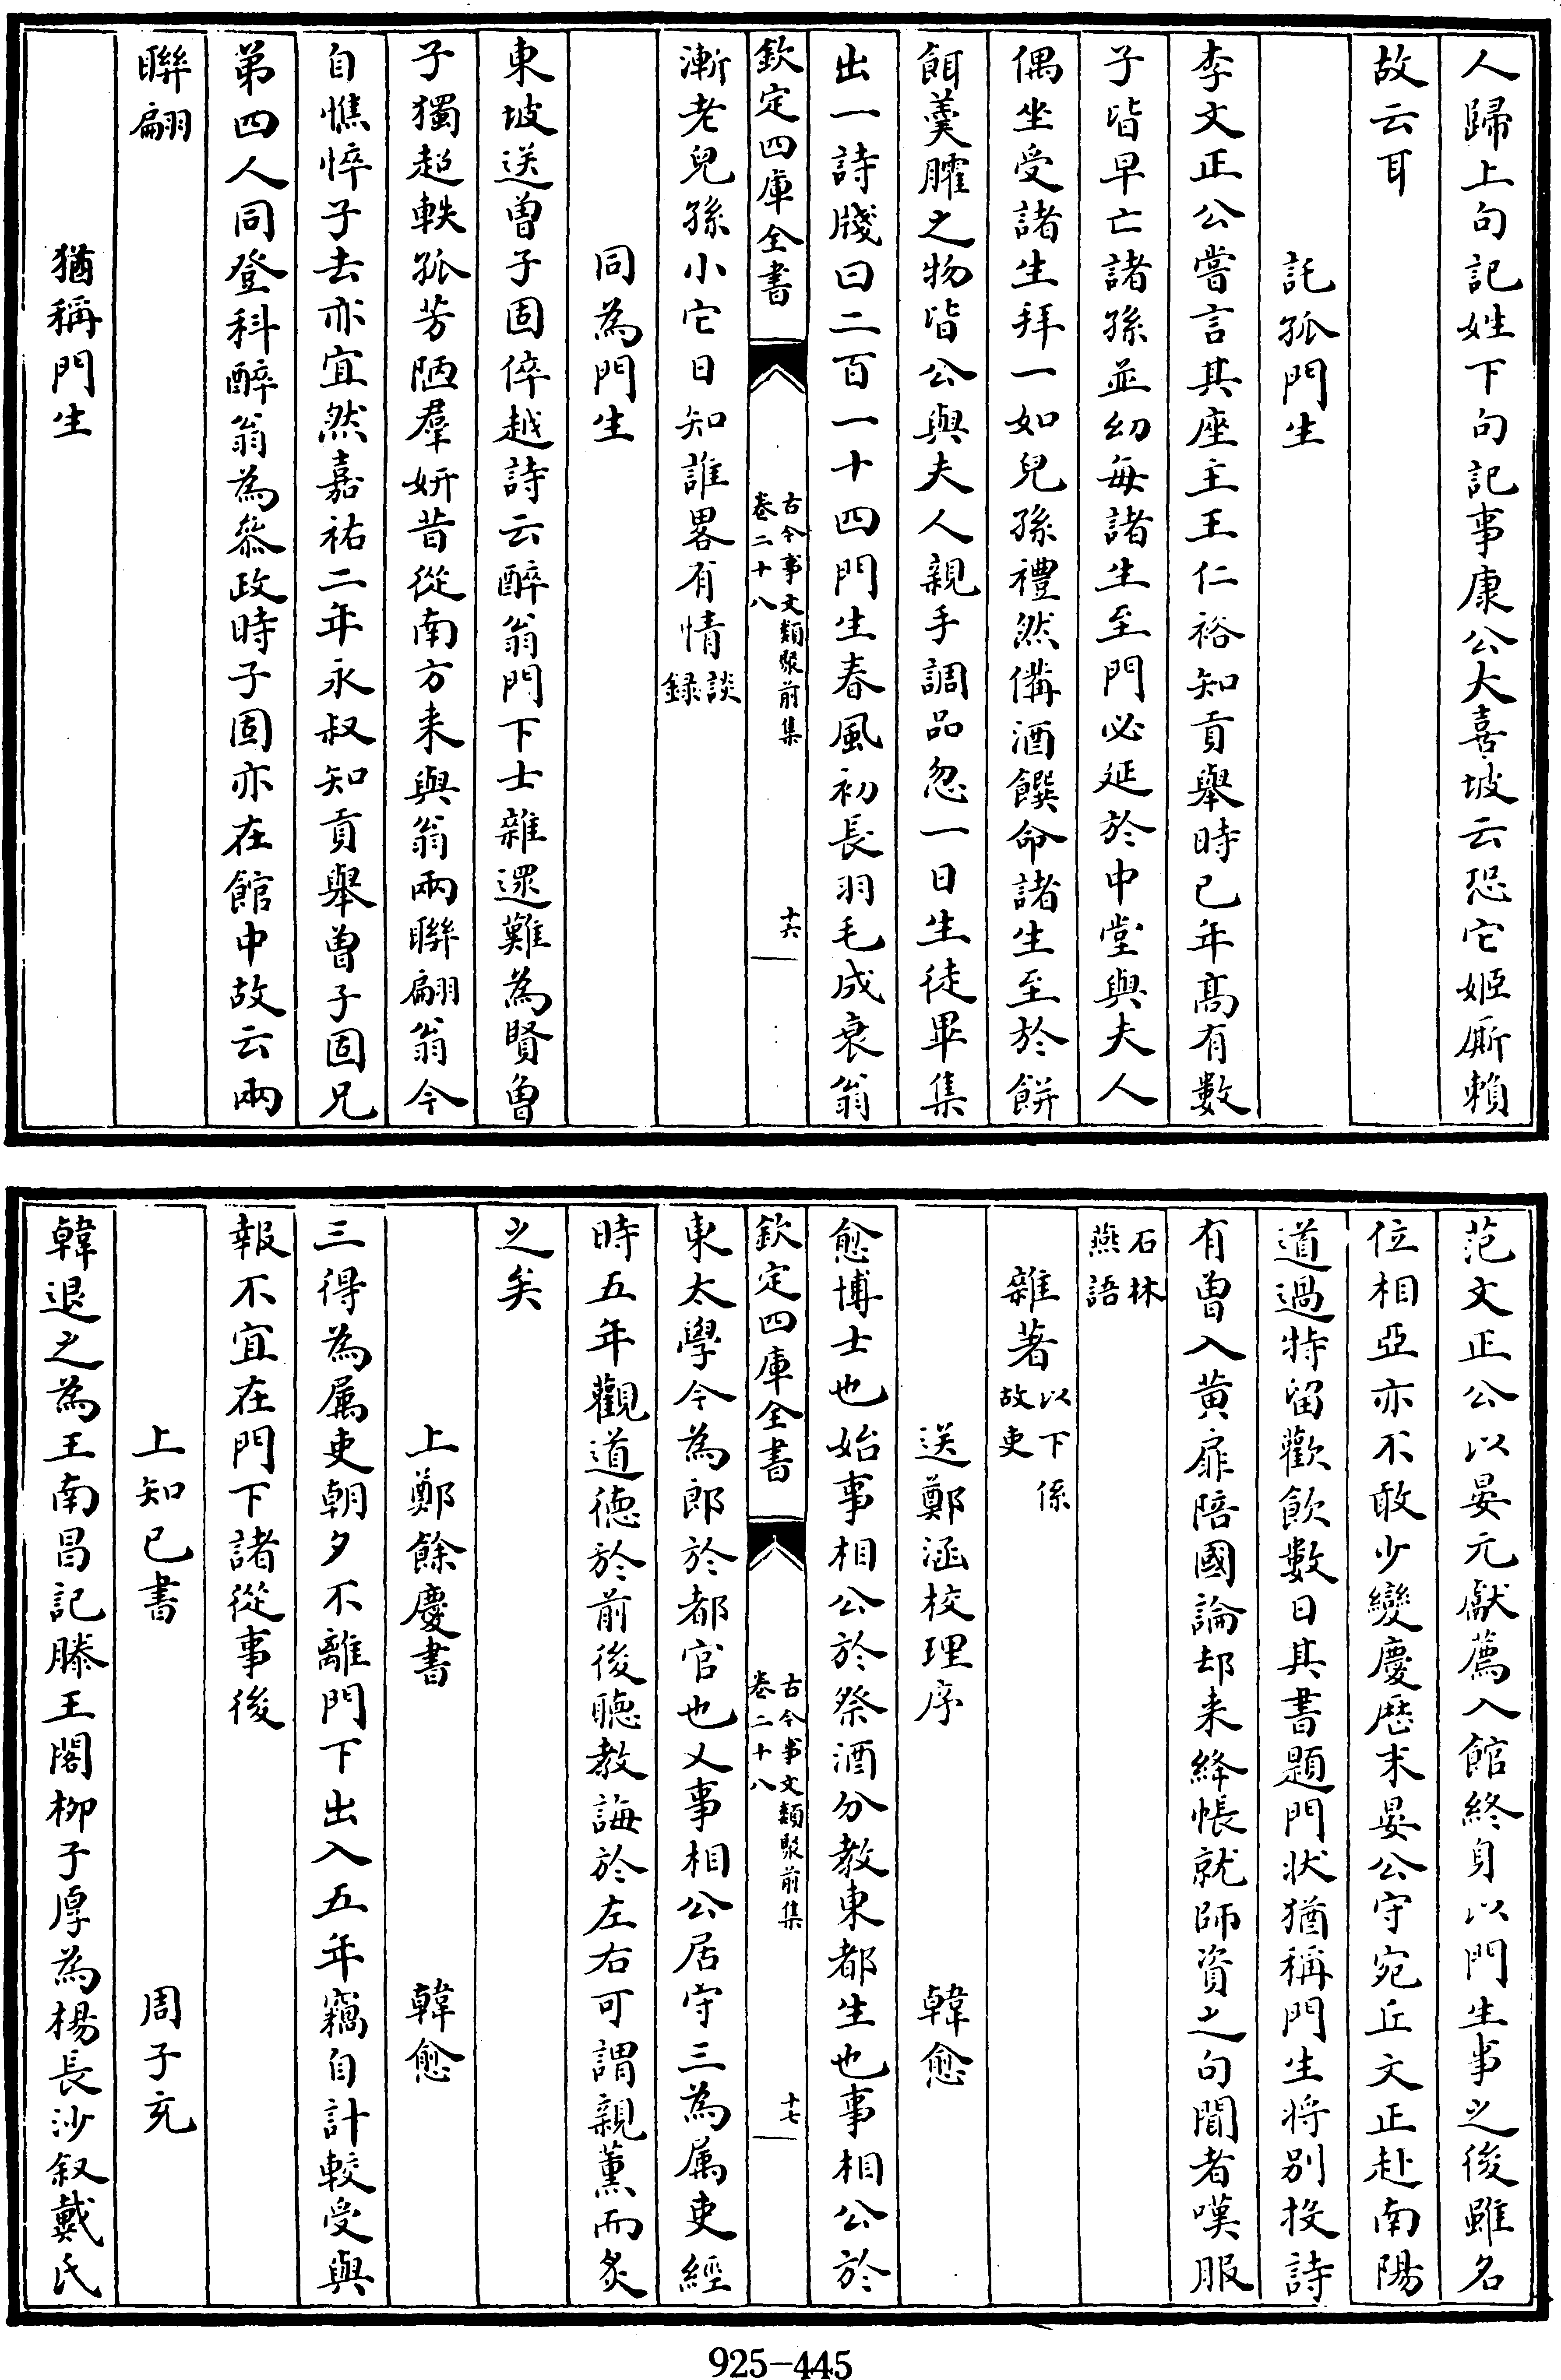 人歸上句記姓下句記事康公大喜坡云恐它姬厮賴
故云耳
託孤門生
李文正公嘗言其座主王仁裕知貢舉時已年髙有數
子皆早亡諸孫並幼每諸生至門必延於中堂與夫人
偶坐受諸生拜一如兒孫禮然備酒饌命諸生至於餅
餌羹臛之物皆公與夫人親手調品忽一日生徒畢集
出一詩牋曰二百一十四門生春風初長羽毛成衰翁
欽定四庫全書
古今事文類聚前集
卷二十八
十六
漸老兒孫小它日知誰畧有情談
録
同為門生
東坡送曾子固倅越詩云醉翁門下士雜遝難為賢曾
子獨超軼孤芳陋羣妍昔從南方来與翁兩聯翩翁今
自憔悴子去亦宜然嘉祐二年永叔知貢舉曾子固兄
弟四人同登科醉翁為叅政時子固亦在館中故云兩
聯翩
猶稱門生
范文正公以晏元獻薦入館終身以門生事之後雖名
位相亞亦不敢少變慶厯末晏公守宛丘文正赴南陽
道過特留歡飲數日其書題門狀猶稱門生將別投詩
有曾入黄扉陪國論却来絳帳就師資之句聞者嘆服
石林
燕語
雜著以下係
故吏
送鄭涵校理序 韓愈
愈博士也始事相公於祭酒分教東都生也事相公於
欽定四庫全書
古今事文類聚前集
卷二十八
十七
東太學今為郎於都官也又事相公居守三為属吏經
時五年觀道徳於前後聽教誨於左右可謂親薫而炙
之矣
上鄭餘慶書 韓愈
三得為属吏朝夕不離門下出入五年竊自計較受與
報不宜在門下諸從事後
上知已書 周子充
韓退之為王南昌記滕王閣栁子厚為楊長沙叙戴氏
925-445